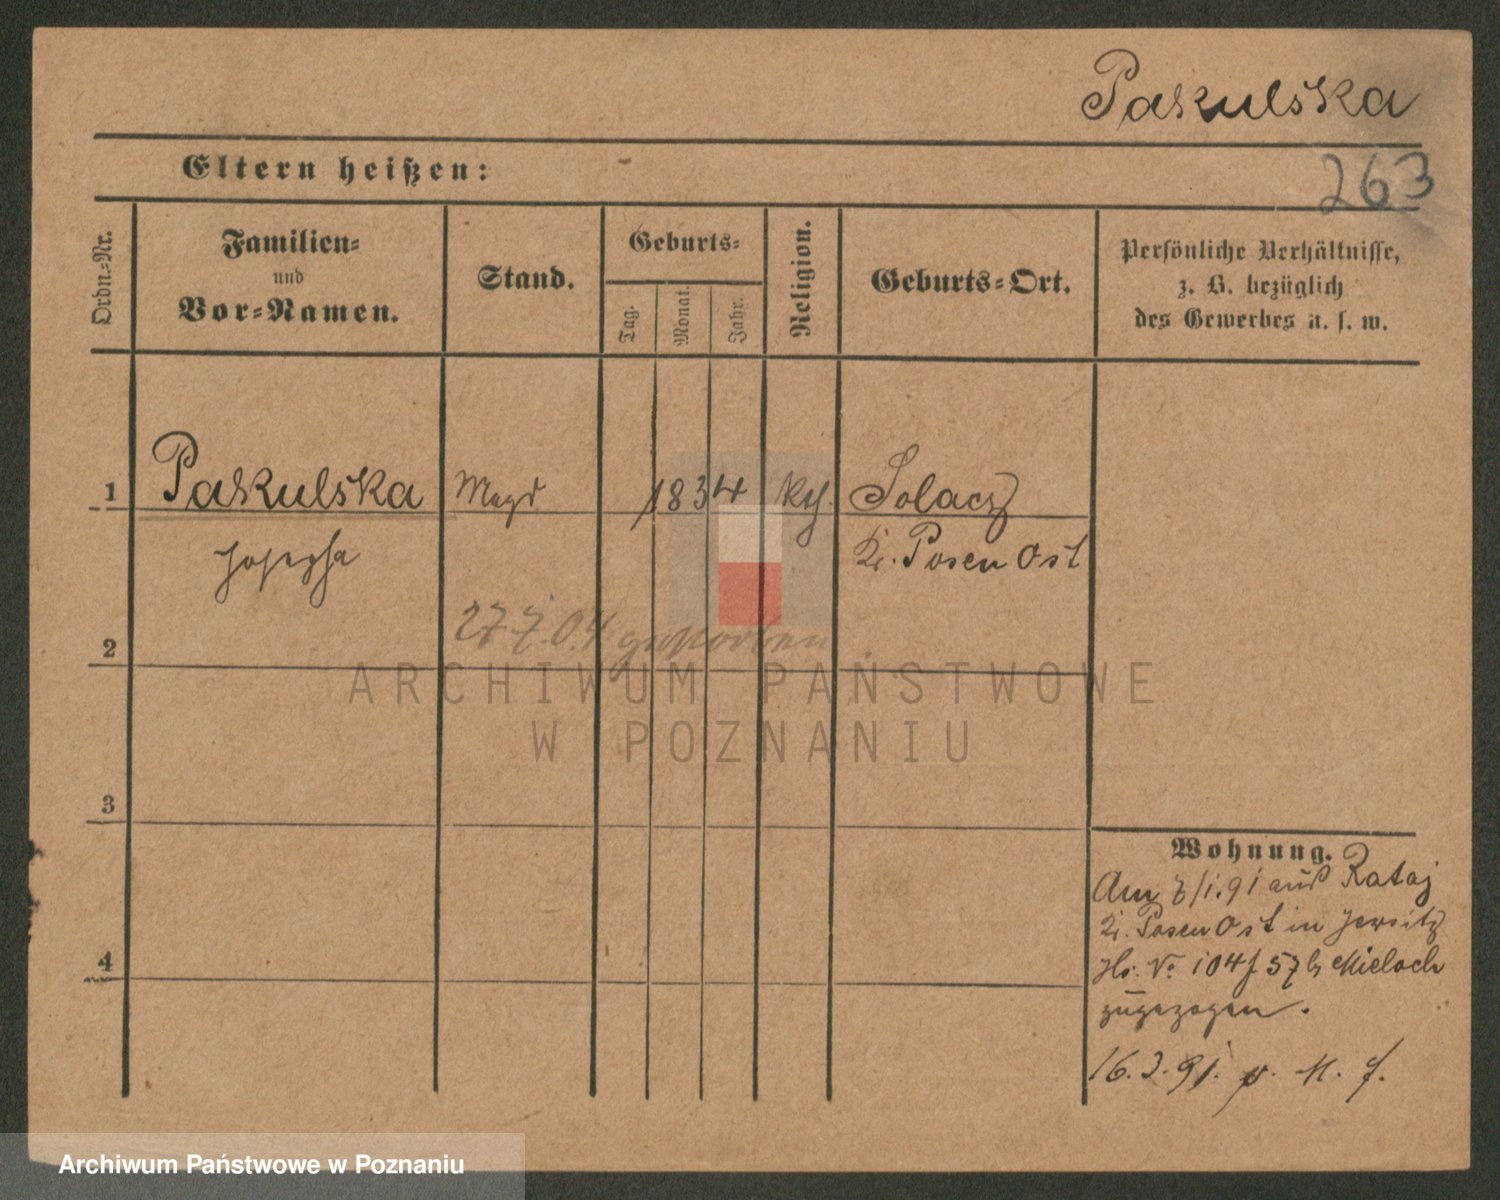 Pakulska
Eltern heißen:
263
Ordn.-Nr.
Familien-
und
Vor-Namen.
Stand.
Geburts-
Tag.
Monat.
Jahr.
Religion.
Geburts-Ort.
Persönliche Verhältnisse,
z. B. bezüglich
des Gewerbes u. s. w.
1 Pakulska Magd 1834 kth. Solacz
Josepha Kr. Posen Ost
27.7.04 gestorben
2
ARCHIWUM PAŃSTWOWE
W POZNANIU
3
Wohnung.
Am 7/1.91 aus Rataj
Kr. Posen Ost in Jersitz
No 104 57 b Mieloch
4
zugezogen.
16.3.91.
Archiwum Państwowe w Poznaniu